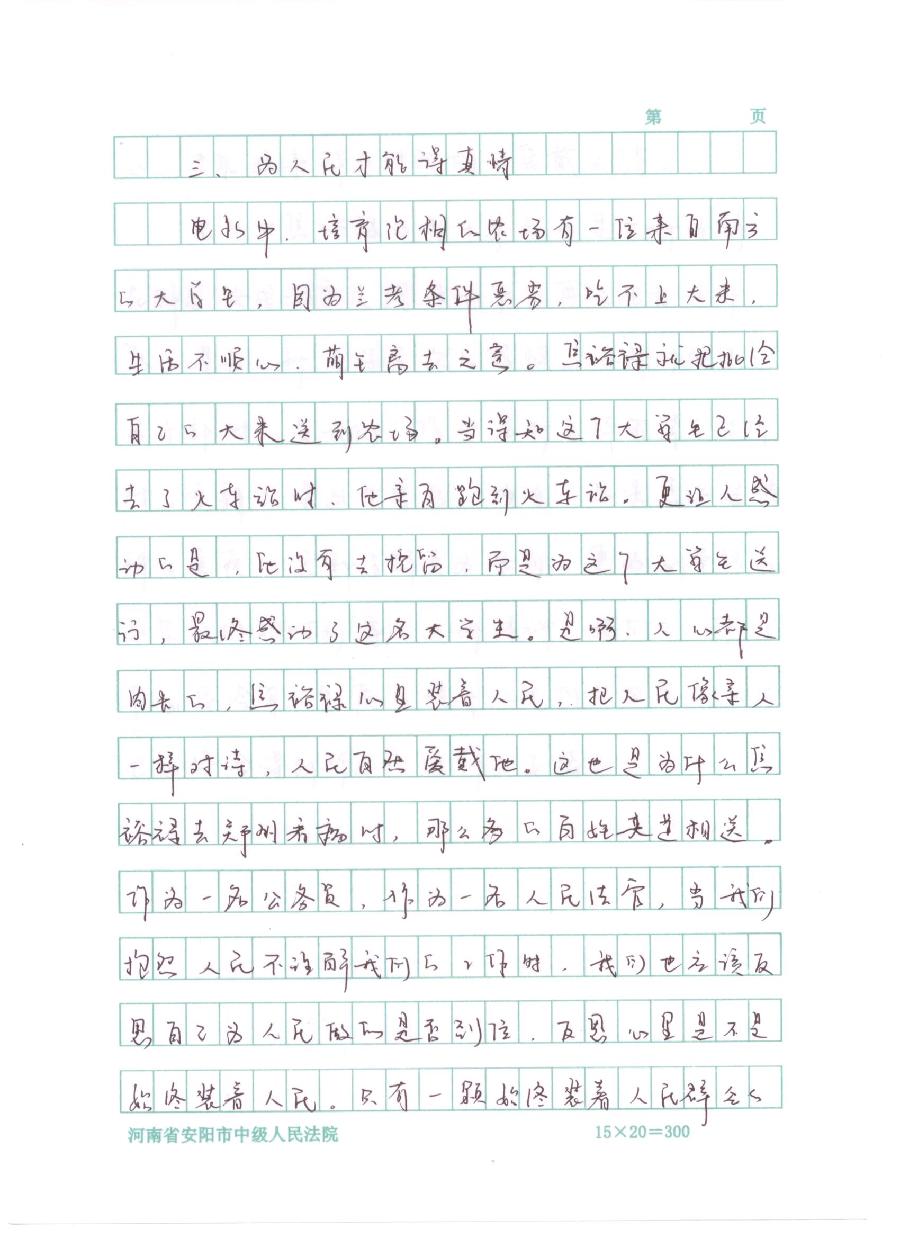 第 页
三、为人民才能得真情
电影中，培育泡桐的农场有一位来自南方
的大学生，因为兰考条件恶劣，吃不上大米，
生活不顺心，萌生离去之意。焦裕禄就把批给
自己的大米送到农场。当得知这个大学生已经
去了火车站时，他亲自跑到火车站。更让人感
动的是，他没有去挽留，而是为这个大学生送
行，最终感动了这名大学生。是啊，人心都是
肉长的，焦裕禄心里装着人民，把人民像亲人
一样对待，人民自然爱戴他。这也是为什么焦
裕禄去郑州看病时，那么多的百姓来送相送。
作为一名公务员，作为一名人民法官，当我们
抱怨人民不谅解我们的工作时，我们也应该反
思自己为人民做的是否到位，反思心里是不是
始终装着人民。只有一颗始终装着人民群众的
河南省安阳市中级人民法院 15×20=300